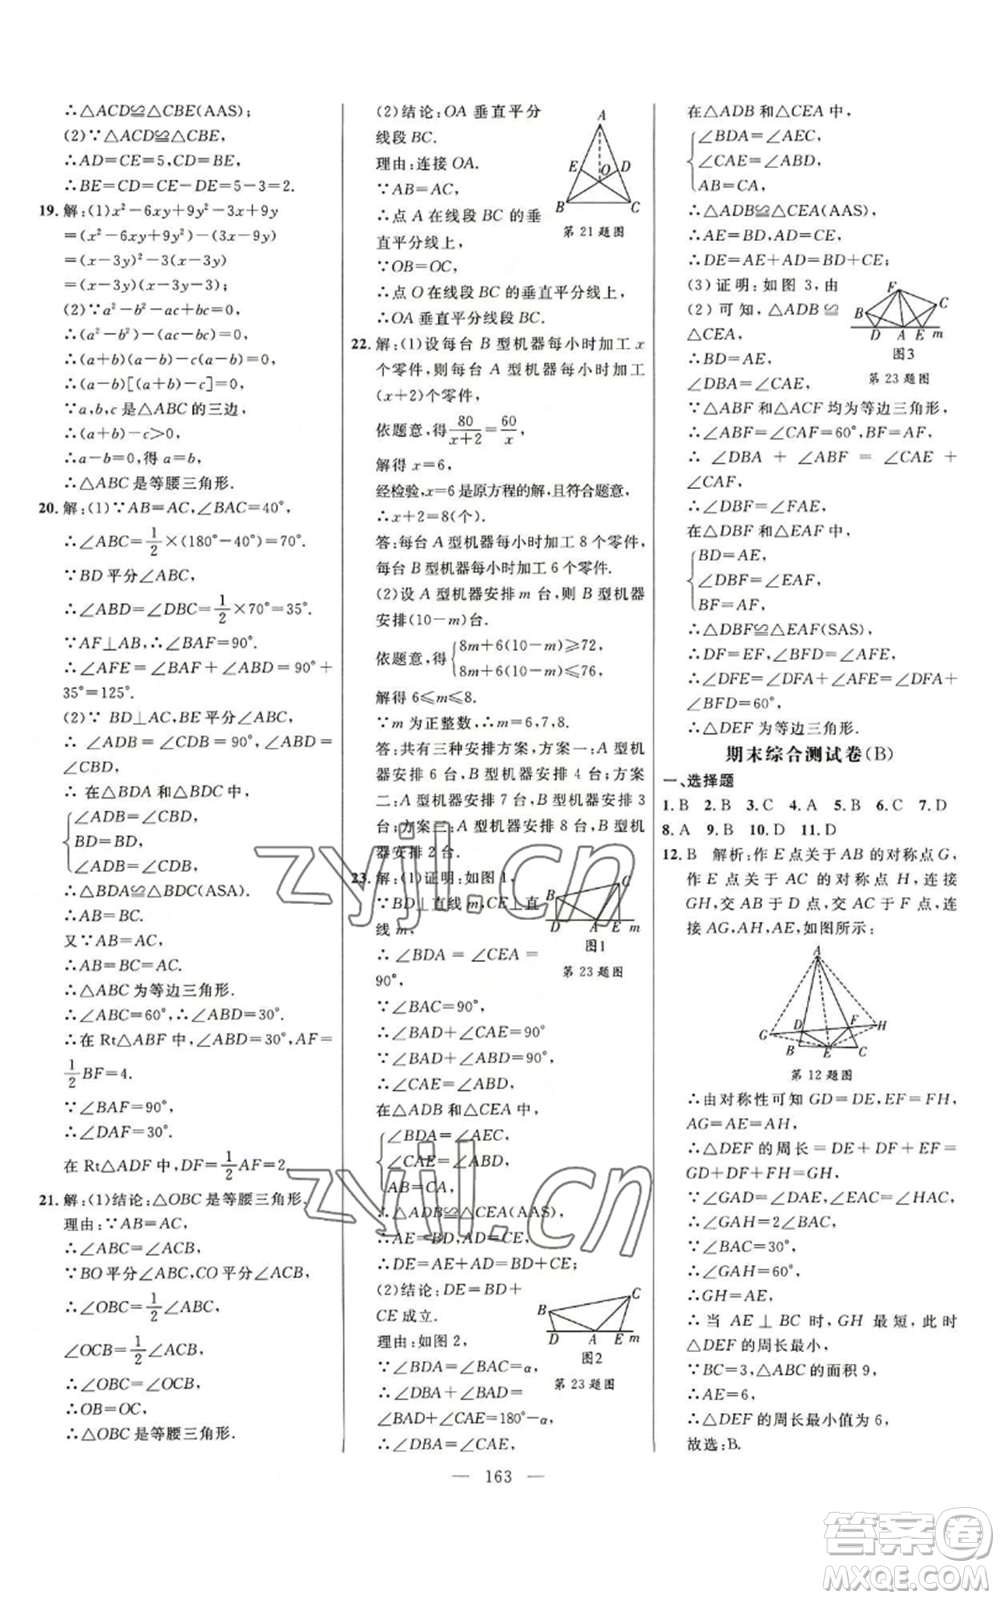 ∴△ACD≌△CBE(AAS);
(2)∵△ACD≌△CBE,
∴AD=CE=5,CD=BE,
∴BE=CD=CE-DE=5-3=2.
19. 解:(1)x²-6xy+9y²-3x+9y
=(x²-6xy+9y²)-(3x-9y)
=(x-3y)²-3(x-3y)
=(x-3y)(x-3y-3);
(2)∵a²-b²-ac+bc=0,
∴(a²-b²)-(ac-bc)=0,
∴(a+b)(a-b)-c(a-b)=0,
∴(a-b)[(a+b)-c]=0,
∵a,b,c是△ABC的三边,
∴(a+b)-c>0,
∴a-b=0,得a=b,
∴△ABC是等腰三角形.
20. 解:(1)∵AB=AC,∠BAC=40°,
∴∠ABC=1/2×(180°-40°)=70°.
∵BD平分∠ABC,
∴∠ABD=∠DBC=1/2×70°=35°.
∵AF⊥AB,∴∠BAF=90°.
∴∠AFE=∠BAF+∠ABD=90°+
35°=125°.
(2)∵ BD⊥AC,BE平分∠ABC,
∴ ∠ADB = ∠CDB = 90°,∠ABD = ∠CBD.
∴ 在△BDA和△BDC中,
∠ABD=∠CBD,
BD=BD,
∠ADB=∠CDB,
∴△BDA≌△BDC(ASA).
∴AB=BC.
又∵AB=AC,
∴AB=BC=AC.
∴△ABC为等边三角形.
∴∠ABC=60°,∴∠ABD=30°.
∴在Rt△ABF中,∠ABD=30°,AF=
1/2BF=4.
∵∠BAF=90°,
∴∠DAF=30°.
在Rt△ADF中,DF=1/2AF=2.
21. 解:(1)结论:△OBC是等腰三角形.
理由:∵AB=AC,
∴∠ABC=∠ACB,
∵BO平分∠ABC,CO平分∠ACB,
∴∠OBC=1/2∠ABC,
∠OCB=1/2∠ACB,
∴∠OBC=∠OCB,
∴OB=OC,
∴△OBC是等腰三角形.
(2)结论:OA垂直平分
线段BC.
理由:连接OA.
∵AB=AC,
∴点A在线段BC的垂
直平分线上,
∵OB=OC,
∴点O在线段BC的垂直平分线上,
∴OA垂直平分线段BC.
A
E
D
O
B
C
第21题图
22. 解:(1)设每台B型机器每小时加工x
个零件,则每台A型机器每小时加工
(x+2)个零件,
依题意,得80/(x+2)=60/x,
解得x=6,
经检验,x=6是原方程的解,且符合题意,
∴x+2=8(个).
答:每台A型机器每小时加工8个零件,
每台B型机器每小时加工6个零件.
(2)设A型机器安排m台,则B型机器
安排(10-m)台.
依题意,得
8m+6(10-m)≥72,
8m+6(10-m)≤76,
解得6≤m≤8.
∵m为正整数,∴m=6,7,8.
答:共有三种安排方案,方案一:A型
机器安排6台,B型机器安排4台;方案
二:A型机器安排7台,B型机器安排3
台;方案三:A型机器安排8台,B型机
器安排2台.
23. 解:(1)证明:如图1,
∵BD⊥直线m,CE⊥直
线m,
∴∠BDA = ∠CEA =
90°,
∵∠BAC=90°,
∴∠BAD+∠CAE=90°
∵∠BAD+∠ABD=90°,
∴∠CAE=∠ABD,
在△ADB和△CEA中,
∠BDA=∠AEC,
∠CAE=∠ABD,
AB=CA,
∴△ADB≌△CEA(AAS),
∴AE=BD,AD=CE,
∴DE=AE+AD=BD+CE;
(2)结论:DE=BD+
CE成立.
理由:如图2,
∵∠BDA=∠BAC=α,
∴∠DBA+∠BAD=
∠BAD+∠CAE=180°-α,
∴∠DBA=∠CAE,
B
C
D
A
E
m
图1
第23题图
B
C
D
A
E
m
图2
第23题图
在△ADB和△CEA中,
∠BDA=∠AEC,
∠CAE=∠ABD,
AB=CA,
∴△ADB≌△CEA(AAS),
∴AE=BD,AD=CE,
∴DE=AE+AD=BD+CE;
(3)证明:如图3,由
(2)可知,△ADB≌
△CEA,
∴BD=AE,
∠DBA=∠CAE,
F
B
C
D
A
E
m
图3
第23题图
∵△ABF和△ACF均为等边三角形,
∴∠ABF=∠CAF=60°,BF=AF,
∴ ∠DBA + ∠ABF = ∠CAE +
∠CAF,
∴∠DBF=∠FAE,
在△DBF和△EAF中,
BD=AE,
∠DBF=∠EAF,
BF=AF,
∴△DBF≌△EAF(SAS),
∴DF=EF,∠BFD=∠AFE,
∴∠DFE=∠DFA+∠AFE=∠DFA+
∠BFD=60°,
∴△DEF为等边三角形.
期末综合测试卷(B)
一、选择题
1. B 2. B 3. C 4. A 5. B 6. C 7. D
8. A 9. B 10. D 11. D
12. B 解析:作E点关于AB的对称点G,
作E点关于AC的对称点H,连接
GH,交AB于D点,交AC于F点,连
接AG,AH,AE,如图所示:
A
G
D
F
H
B
E
C
第12题图
∴由对称性可知GD=DE,EF=FH,
AG=AE=AH,
∴△DEF的周长=DE+DF+EF=
GD+DF+FH=GH,
∵∠GAD=∠DAE,∠EAC=∠HAC,
∴∠GAH=2∠BAC,
∵∠BAC=30°,
∴∠GAH=60°,
∴GH=AE,
∴当AE⊥BC时,GH最短,此时
△DEF的周长最小,
∵BC=3,△ABC的面积9,
∴AE=6,
∴△DEF的周长最小值为6,
故选:B.
— 163 —
zyjl.cn
zyjl.cn
答案圈
MXQE.COM